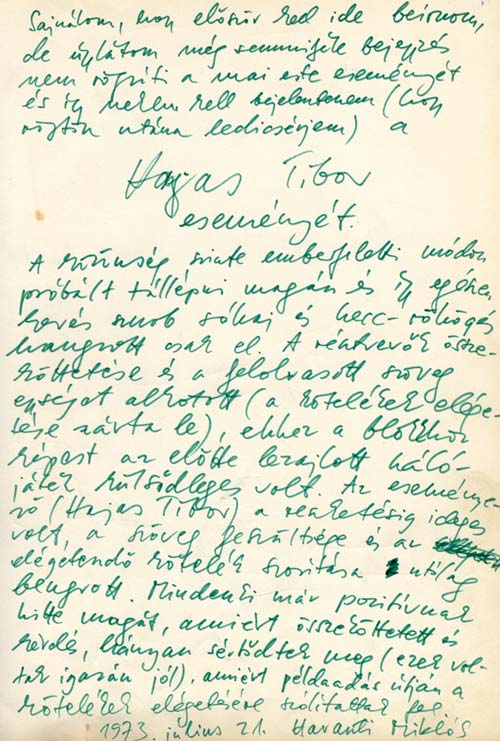 Sajnálom, hogy először kell ide beírnom,
de úgylátom még semmiféle bejegyzés
nem rögzíti a mai este eseményét
és így nekem kell bejelentenem (hogy
rögtön utána ledicsérjem) a
Hajas Tibor
eseményét.
A közönség szinte emberfeletti módon
próbált túllépni magán és így egészen
kevés snob sóhaj és hecc-röhögés
hangzott csak el. A résztvevők össze-
köttetése és a felolvasott szöveg
egységet alkotott (a kötelékek elége-
tése zárta le), ehhez a blokkhoz
képest az előtte lezajlott háló-
játék külsődleges volt. Az esemény-
ző (Hajas Tibor) a rekedtségig ideges
volt, a szöveg feszültsége és az
elégetendő kötelék szorítása utólag
beugrott. Mindenki már pozitívnak
hitte magát, amiért összeköttetett és
kérdés, hányan sértődtek meg (ezek vol-
tak igazán jól), amiért példaadás útján a
kötelékek elégetésére szólíttattak fel.
1973. július 21. Haraszti Miklós